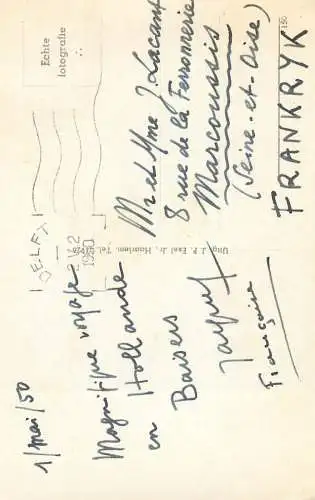 1/mai/50
Magnifique voyage
en Hollande
Baisers
Jacques
Françoise
Echte
fotografie
DELFT
1950
Uitg. J. P. Exel Jr., Haarlem. Tel.
Mr et Mme J. Lacant
8 rue de la Ferronnerie
Marcoussis
(Seine-et-Oise)
FRANKRYK